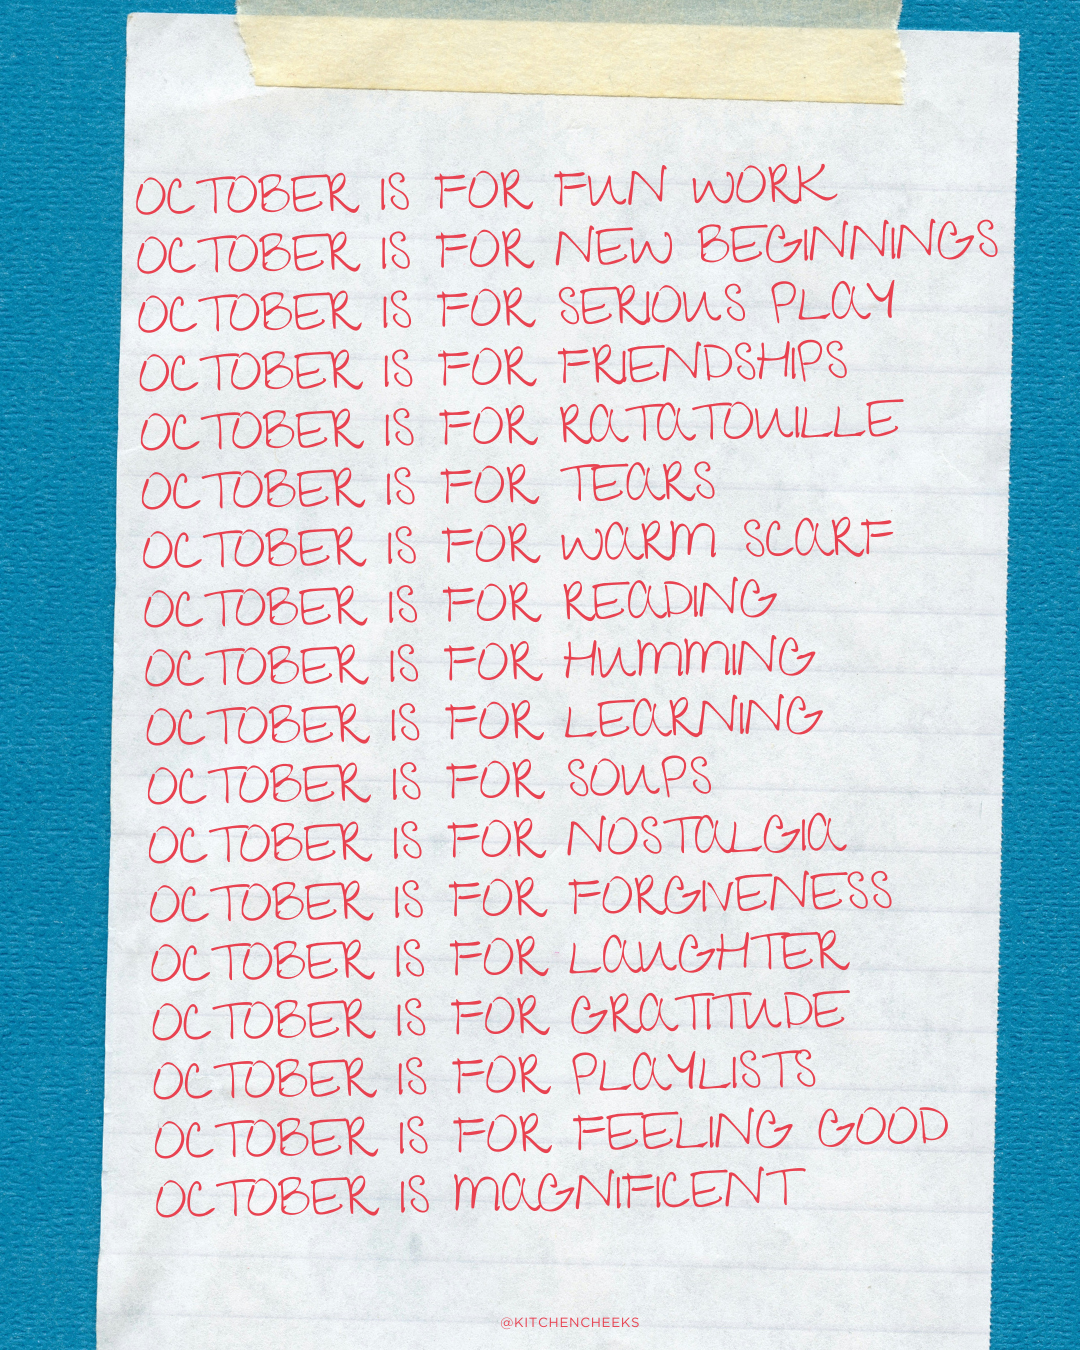 OCTOBER IS FOR FUN WORK
OCTOBER IS FOR NEW BEGINNINGS
OCTOBER IS FOR SERIOUS PLAY
OCTOBER IS FOR FRIENDSHIPS
OCTOBER IS FOR RATATOUILLE
OCTOBER IS FOR TEARS
OCTOBER IS FOR WARM SCARF
OCTOBER IS FOR READING
OCTOBER IS FOR HUMMING
OCTOBER IS FOR LEARNING
OCTOBER IS FOR SOUPS
OCTOBER IS FOR NOSTALGIA
OCTOBER IS FOR FORGIVENESS
OCTOBER IS FOR LAUGHTER
OCTOBER IS FOR GRATITUDE
OCTOBER IS FOR PLAYLISTS
OCTOBER IS FOR FEELING GOOD
OCTOBER IS MAGNIFICENT
@KITCHENCHEEKS